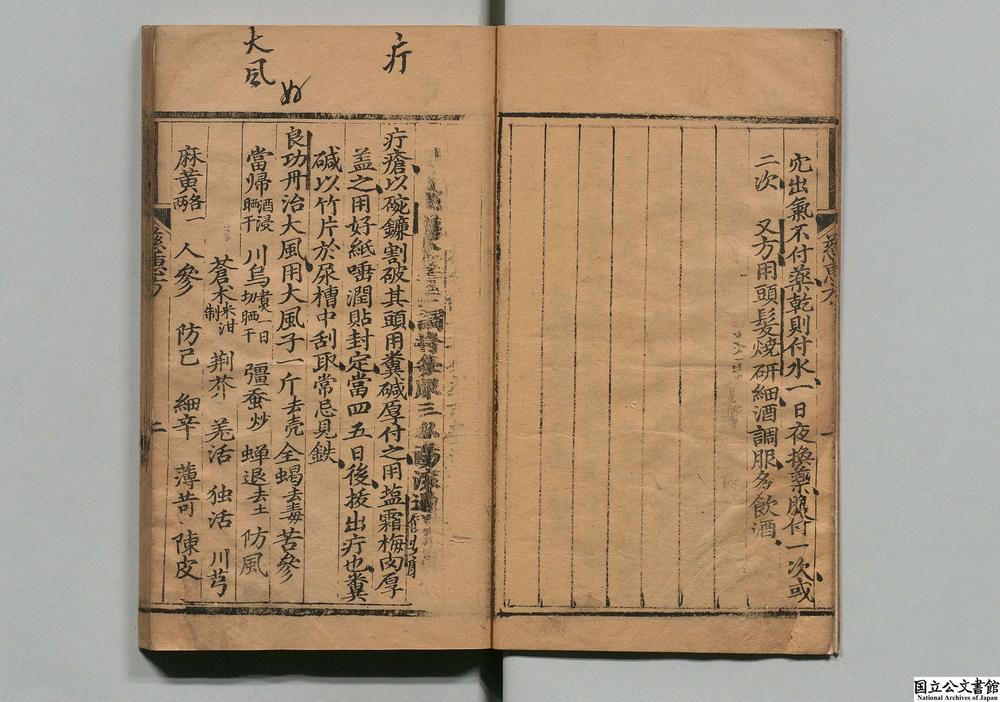 穴出氣不付藥乾則付水一日夜換藥服付一次或
二次 又方用頭髮燒研細酒調服多飲酒
疔
疔瘡以碗鐮割破其頭用糞碱厚付之用塩霜梅肉厚
盖之用好紙唾潤貼封定當四五日後拔出疔也糞
碱以竹片於尿槽中刮取常忌見鉄
大風
良功丹治大風用大風子一斤去壳全蝎去毒苦參
當帰酒浸晒干 川烏煮一日切晒干 彊蚕炒 蝉退去土 防風
蒼术米泔制 荆芥 羌活 独活 川芎
麻黄各一两 人參 防己 細辛 薄苛 陳皮
二
国立公文書館
National Archives of Japan